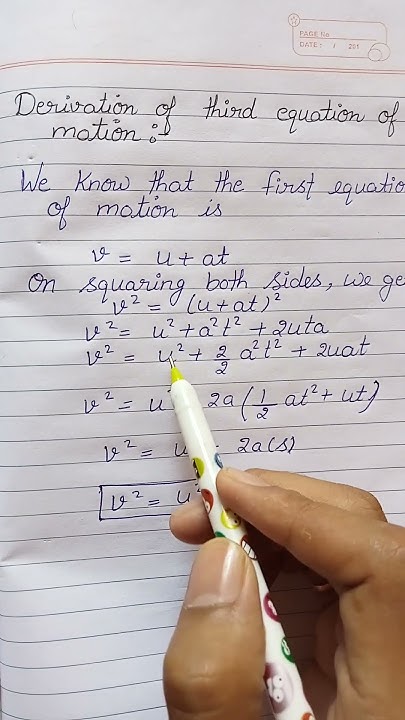 PAGE No
DATE: / 201
Derivation of third equation of
motion:-
We know that the first equatio
of motion is
v = u + at
On squaring both sides, we ge
v² = (u+at)²
v² = u² + a²t² + 2uta
v² = u² + 2/2 a²t² + 2uat
v² = u 2a(1/2 at² + ut)
v² = u 2a(s)
v² = u²